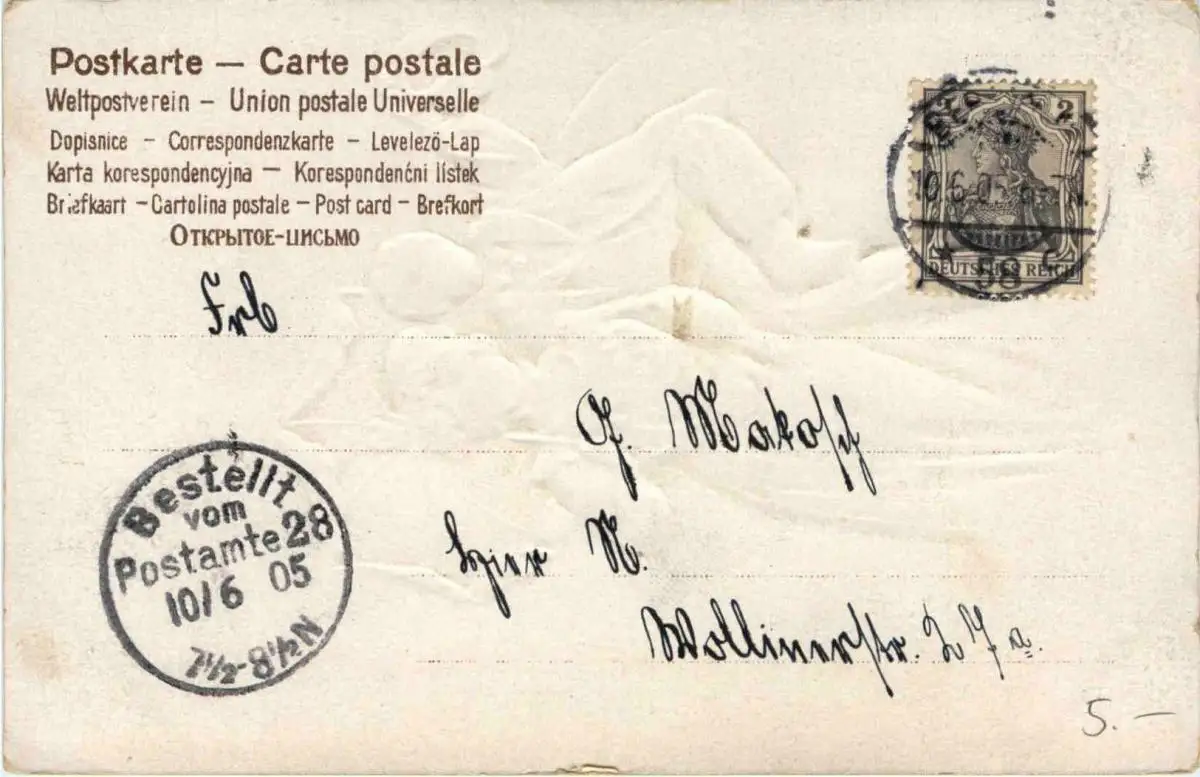 Postkarte — Carte postale
Weltpostverein – Union postale Universelle
Dopisnice – Correspondenzkarte – Levelező-Lap
Karta korespondencyjna – Korespondenční lístek
Briefkaart – Cartolina postale – Post card – Brefkort
ОТКРЫТОЕ-ПИСЬМО
2
10.6.05
DEUTSCHES REICH
58 c
Frb
G. Makosch
hier N.
Wollinerstr. 27a.
Bestellt
vom
Postamte 28
10/6 05
7½-8½N
5.—